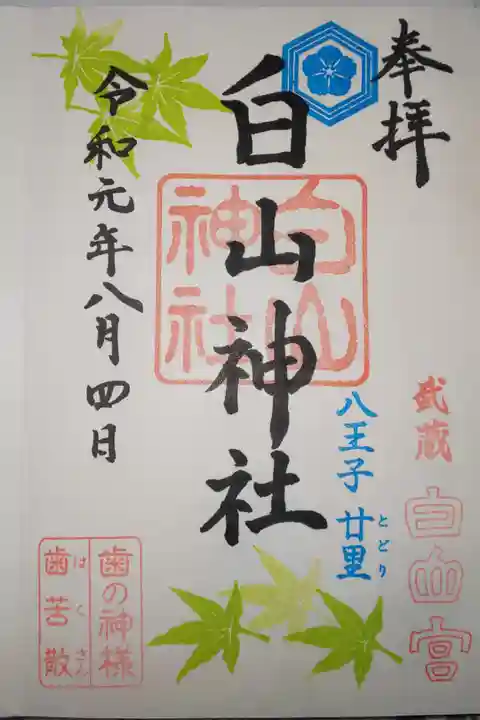 奉拝
武蔵
白山宮
八王子 廿里
とどり
白山神社
白山
神社
令和元年八月四日
歯の神様
歯苦散
はくさん